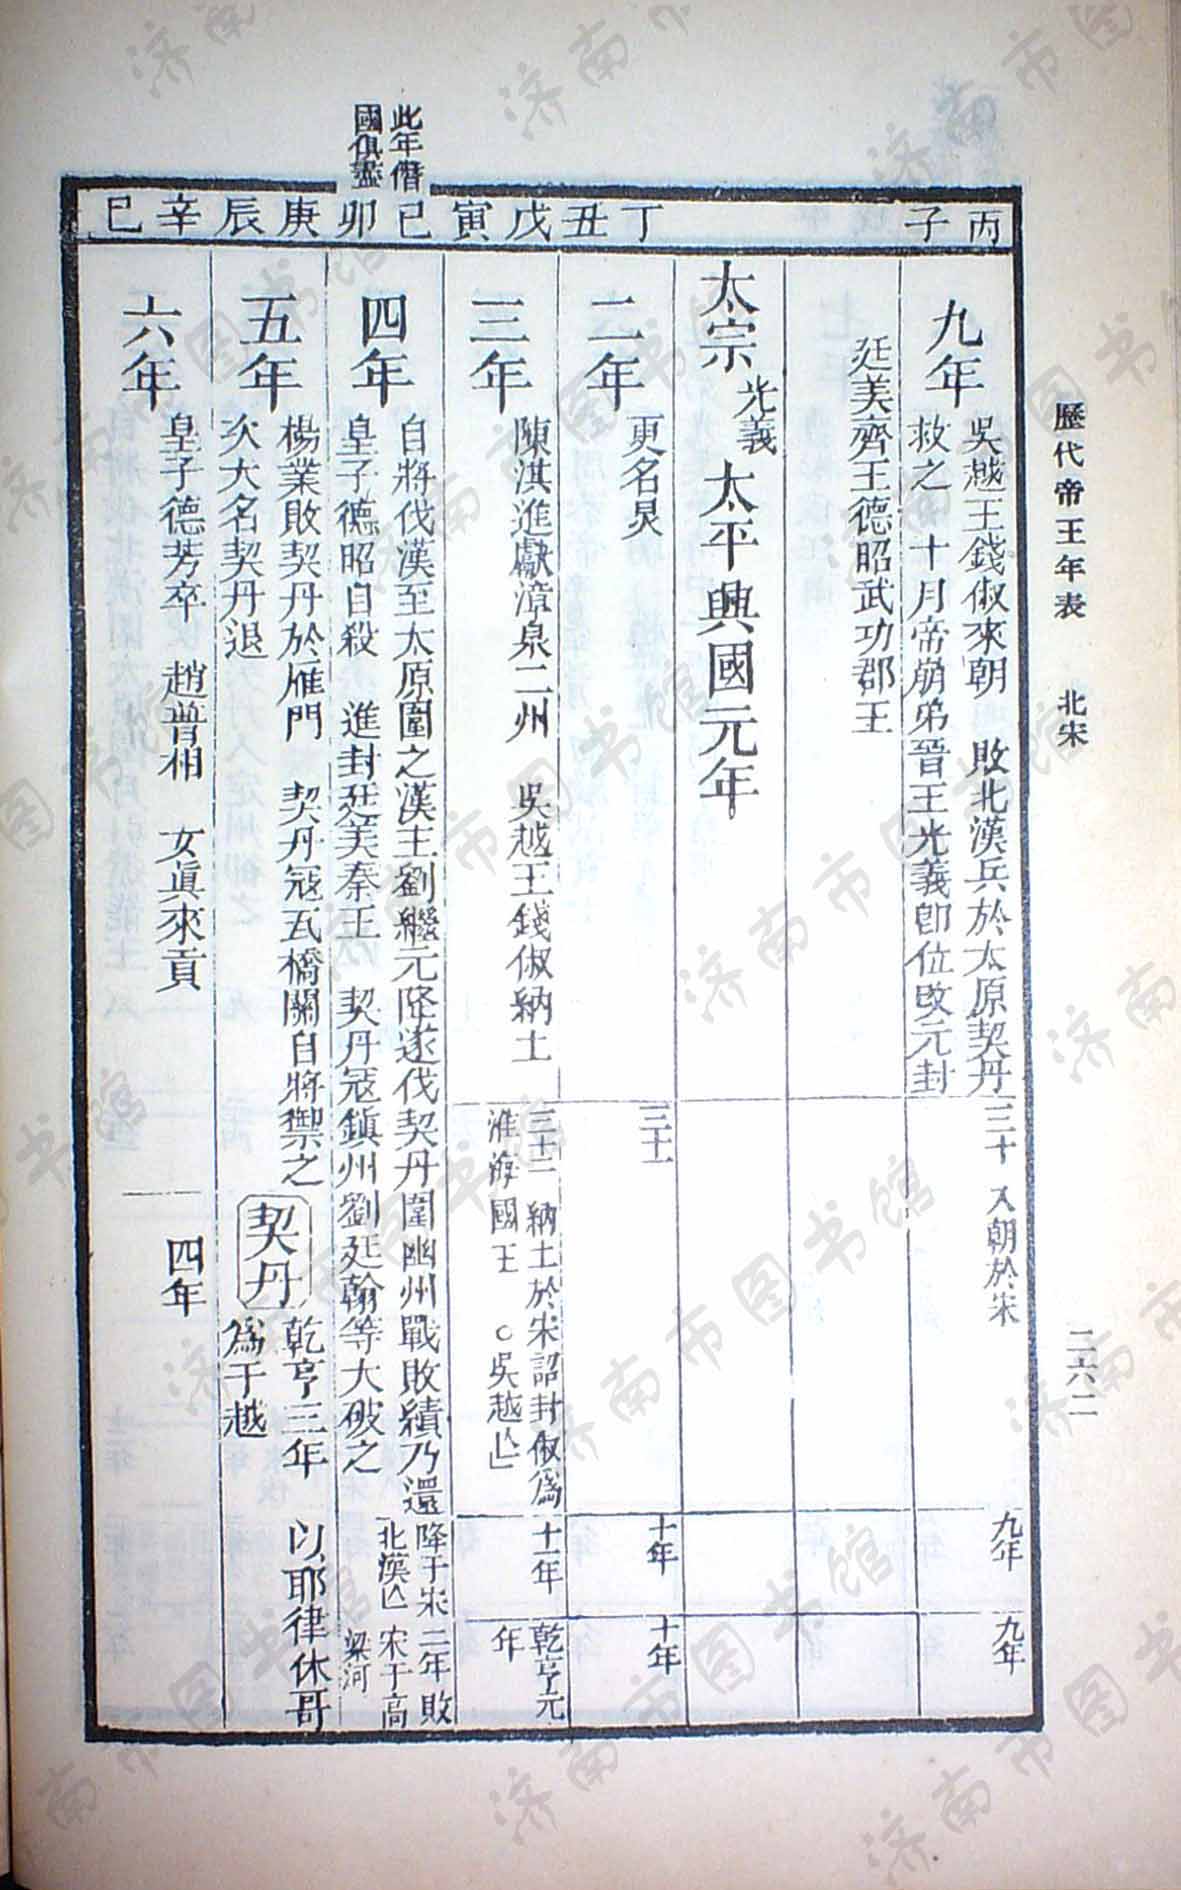 歷代帝王年表 北宋 二六二
此年僭
國俱盡
丙子
丁丑
戊寅
己卯
庚辰
辛巳
九年
吳越王錢俶來朝 敗北漢兵於太原契丹
救之 十月帝崩弟晉王光義卽位改元封
廷美齊王德昭武功郡王
三十 入朝於宋
九年
九年
太宗 光義 太平興國元年
二年
更名炅
三十一
十年
十年
三年
陳洪進獻漳泉二州 吳越王錢俶納土
三十二 納土於宋詔封俶爲
淮海國王 ○吳越亾
十一年
乾亨元
年
四年
自將伐漢至太原圍之漢主劉繼元降遂伐契丹圍幽州戰敗績乃還
皇子德昭自殺 進封廷美秦王 契丹寇鎮州劉廷翰等大破之
降于宋
北漢亾
二年敗
宋于高
梁河
五年
楊業敗契丹於雁門 契丹寇瓦橋關自將禦之
次大名契丹退
契丹
乾亨三年 以耶律休哥
爲于越
六年
皇子德芳卒 趙普相 女眞來貢
四年
濟南市图书馆